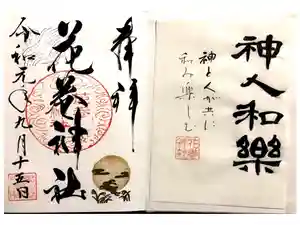 神人和樂
神と人が共に
和み楽しむ
奉拝
花巻神社
令和元年九月十五日